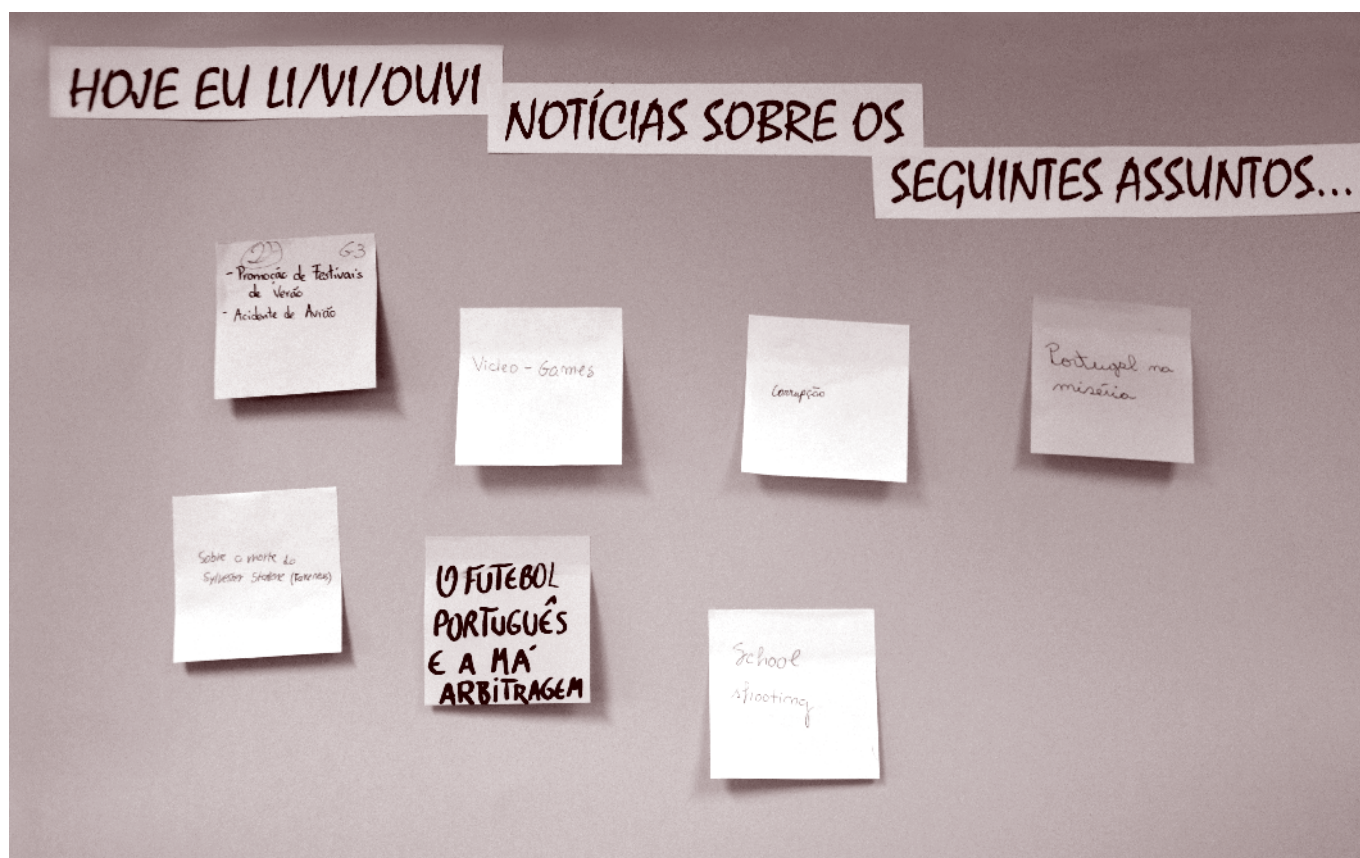 HOJE EU LI/VI/OUVI
NOTÍCIAS SOBRE OS
SEGUINTES ASSUNTOS...
G3
- Promoção de Festivais
de Verão
- Acidente de Avião
Video - Games
Corrupção
Portugal na
miséria
Sobre a morte do
Sylvester Stallone
O FUTEBOL
PORTUGUÊS
E A MÁ
ARBITRAGEM
School
shooting